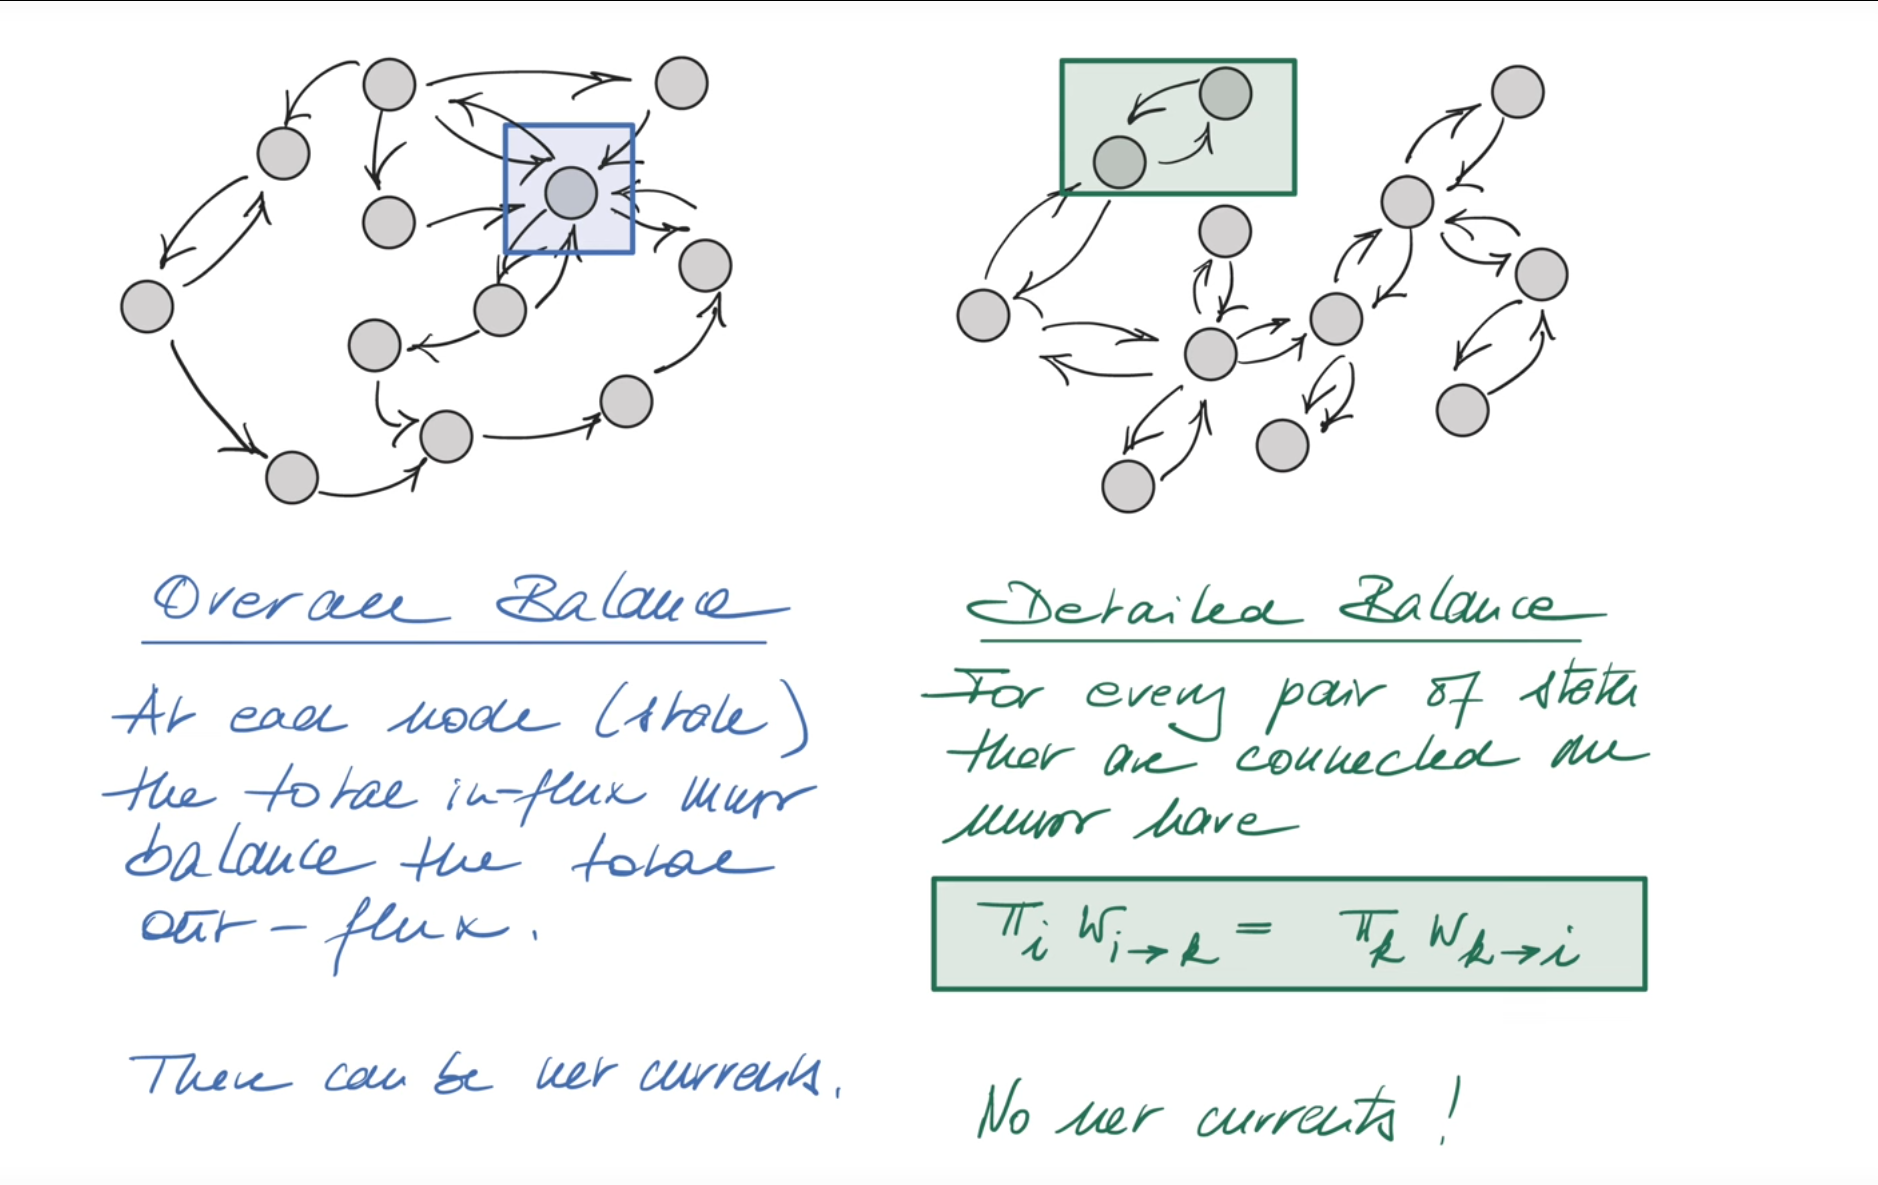 Overall Balance
At each node (state)
the total in-flux must
balance the total
out-flux.
There can be net currents.
Detailed Balance
For every pair of states
that are connected we
must have
π_i W_{i→k} = π_k W_{k→i}
No net currents!